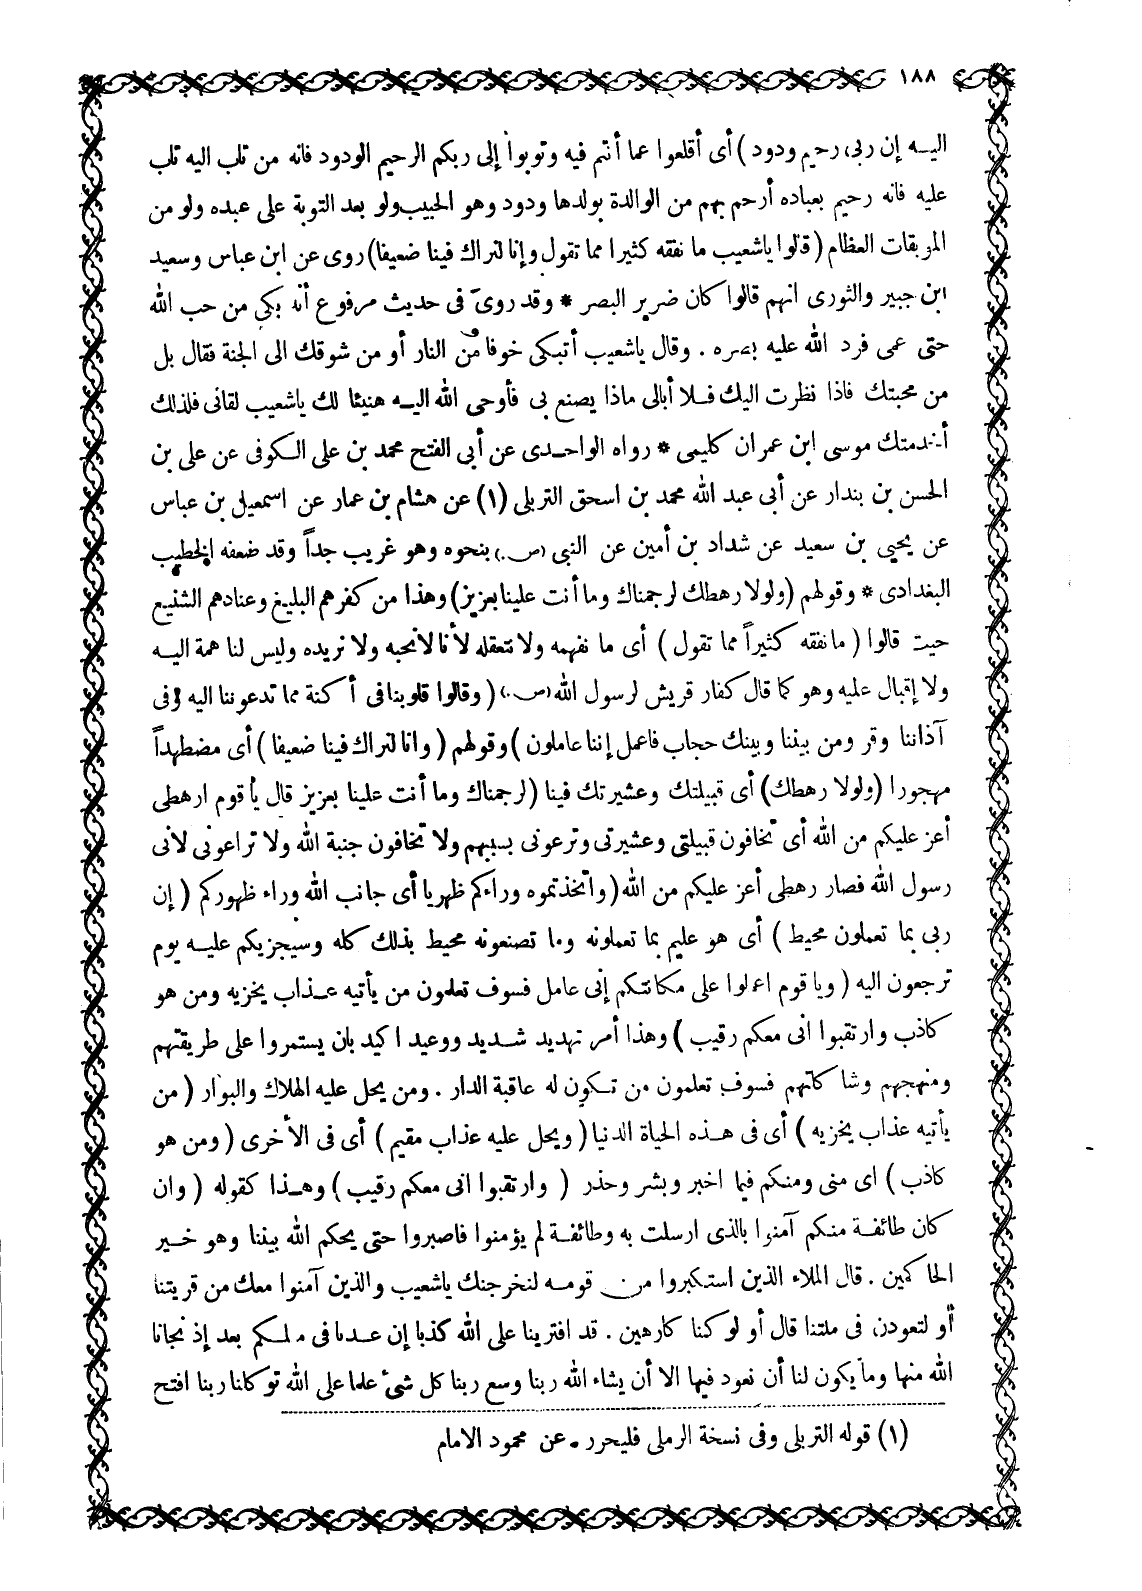 ١٨٨
اليه إن ربى رحيم ودود ) أى أقلعوا عما أنتم فيه وتوبوا إلى ربكم الرحيم الودود فانه من تاب اليه تاب
عليه فانه رحيم بعباده أرحم بهم من الوالدة بولدها ودود وهو الحبيب ولو بعد التوبة على عبده ولو من
الموبقات العظام ( قالوا ياشعيب ما نفقه كثيرا مما تقول وإنا لنراك فينا ضعيفا) روى عن ابن عباس وسعيد
ابن جبير والثورى انهم قالوا كان ضرير البصر * وقد روى فى حديث مرفوع أنه بكى من حب الله
حتى عمى فرد الله عليه بصره . وقال ياشعيب أتبكى خوفا من النار أو من شوقك الى الجنة فقال بل
من محبتك فاذا نظرت اليك فلا أبالى ماذا يصنع بى فأوحى الله اليه هنيئا لك ياشعيب لقائى فلذلك
أخدمتك موسى ابن عمران كليمى * رواه الواحدى عن أبى الفتح محمد بن على الكوفى عن على بن
الحسن بن بندار عن أبى عبد الله محمد بن اسحق التربلى (١) عن هشام بن عمار عن اسمعيل بن عباس
عن يحيى بن سعيد عن شداد بن أمين عن النبى (ص.) بنحوه وهو غريب جداً وقد ضعفه الخطيب
البغدادى * وقولهم (ولولا رهطك لرجمناك وما أنت علينا بعزيز) وهذا من كفرهم البليغ وعنادهم الشنيع
حيث قالوا ( ما نفقه كثيراً مما تقول ) أى ما نفهمه ولا نتعقله لأنا لانحبه ولا نريده وليس لنا همة اليه
ولا إقبال عليه وهو كما قال كفار قريش لرسول الله (ص.) ( وقالوا قلوبنا فى أكنة مما تدعوننا اليه وفى
آذاننا وقر ومن بيننا وبينك حجاب فاعمل إننا عاملون ) وقولهم ( وانا لنراك فينا ضعيفا ) أى مضطهداً
مهجورا (ولولا رهطك) أى قبيلتك وعشيرتك فينا (لرجمناك وما أنت علينا بعزيز قال يأقوم ارهطى
أعز عليكم من الله أى تخافون قبيلتى وعشيرتى وترعونى بسببهم ولا تخافون جنبة الله ولا تراعونى لانى
رسول الله فصار رهطى أعز عليكم من الله (واتخذتموه وراءكم ظهريا أى جانب الله وراء ظهوركم ( إن
ربى بما تعملون محيط ) أى هو عليم بما تعملونه وما تصنعونه محيط بذلك كله وسيجزيكم عليه يوم
ترجعون اليه ( ويا قوم اعملوا على مكانتكم إنى عامل فسوف تعلمون من يأتيه عذاب يخزيه ومن هو
كاذب وارتقبوا انى معكم رقيب ) وهذا أمر تهديد شديد ووعيد اكيد بان يستمروا على طريقتهم
ومنهجهم وشاكلتهم فسوف تعلمون من تكون له عاقبة الدار . ومن يحل عليه الهلاك والبوار ( من
يأتيه عذاب يخزيه ) أى فى هذه الحياة الدنيا ( ويحل عليه عذاب مقيم ) أى فى الأخرى ( ومن هو
كاذب ) اى منى ومنكم فيما اخبر وبشر وحذر ( وارتقبوا انى معكم رقيب ) وهذا كقوله ( وان
كان طائفة منكم آمنوا بالذى ارسلت به وطائفة لم يؤمنوا فاصبروا حتى يحكم الله بيننا وهو خير
الحاكمين . قال الملاء الذين استكبروا من قومه لنخرجنك ياشعيب والذين آمنوا معك من قريتنا
أو لتعودن فى ملتنا قال أو لو كنا كارهين . قد افترينا على الله كذبا إن عدنا فى ملتكم بعد إذ نجانا
الله منها وما يكون لنا أن نعود فيها الا أن يشاء الله ربنا وسع ربنا كل شئ علما على الله توكانا ربنا افتح
(١) قوله التربلى وفى نسخة الرملى فليحرر . عن محمود الامام